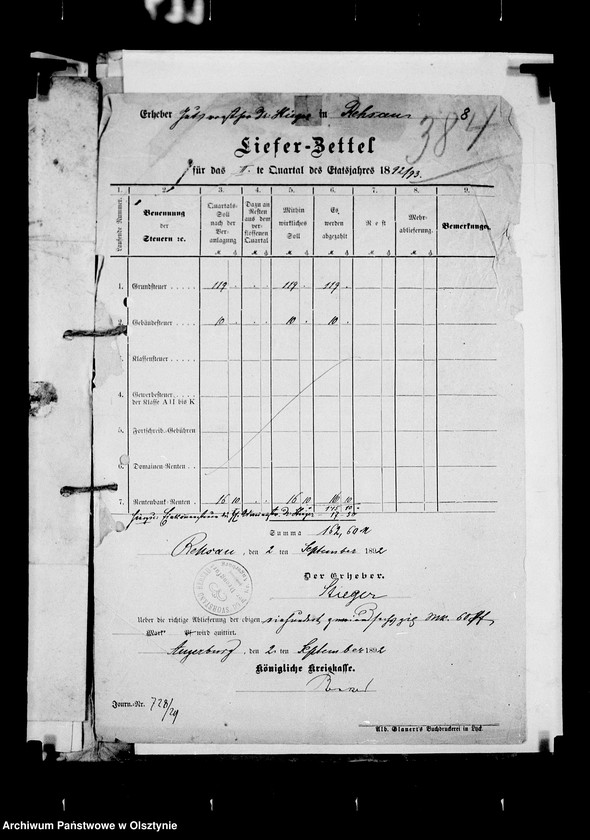 Erheber in Rehsau 8
384
Liefer-Zettel
für das II. te Quartal des Etatsjahres 1892/93.
1. 2. 3. 4. 5. 6. 7. 8. 9.
Laufende Nummer. Benennung der Steuern ꝛc. Quartals-Soll nach der Veranlagung Dazu an Resten aus dem verflossenen Quartal Mithin wirkliches Soll Es werden abgezahlt Rest Mehrablieferung. Bemerkungen
1. Grundsteuer . . . . . 119 . . . 119 . 119 .
2. Gebäudesteuer . . . . 10 . . . 10 . 10 .
3. Klassensteuer . . . . .
4. Gewerbesteuer . . . . .
der Klasse A II bis K
5. Fortschreib.-Gebühren
6. Domainen-Renten . .
7. Rentenbank-Renten . 16 10 16 10 16 10
145 10
17 50
Summa 162,60 M
Rehsau, den 2 ten September 1892
Der Erheber.
Steger
Ueber die richtige Ablieferung der obigen Mk. 60 Pf
Mark Pf wird quittirt.
Angerburg, den 2 ten September 1892
Königliche Kreiskasse.
Journ.-Nr. 728/29
Alb. Glanert's Buchdruckerei in Lyck.
Archiwum Państwowe w Olsztynie